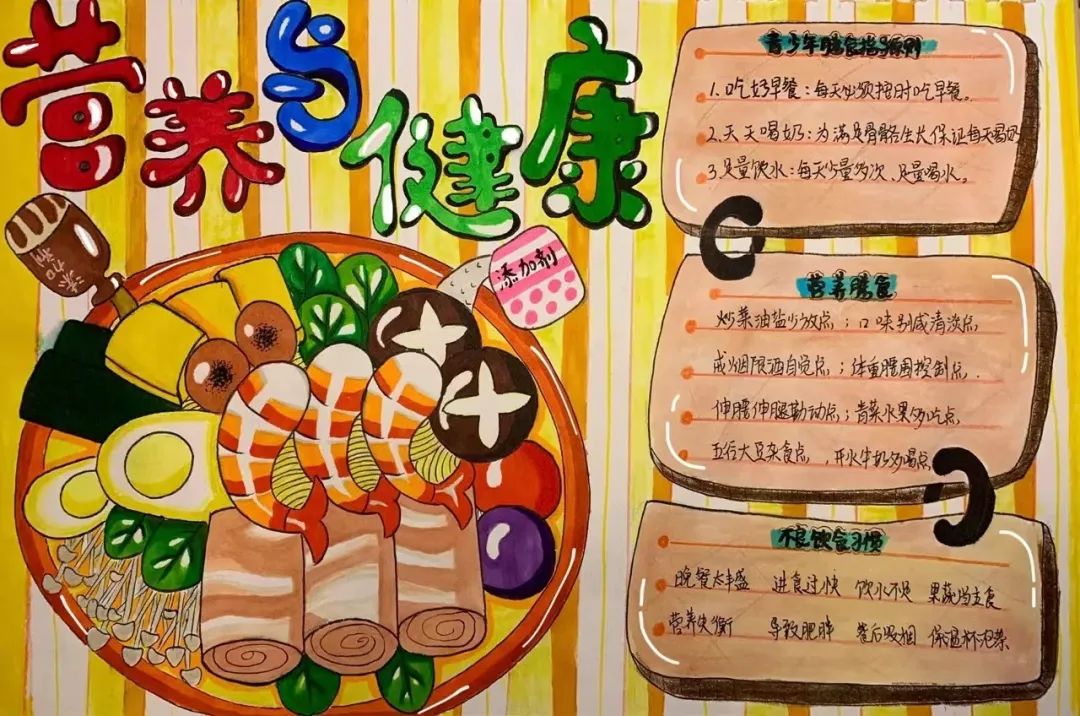 营养与健康
添加剂
青少年膳食指导原则
1.吃好早餐：每天必须按时吃早餐。
2.天天喝奶：为满足骨骼生长保证每天喝奶
3.足量饮水：每天少量多次、足量喝水。
营养膳食
炒菜油盐少放点；口味别咸清淡点
戒烟限酒自觉点；体重腰围控制点.
伸腰伸腿勤动点；青菜水果多吃点
五谷大豆杂食点，开水牛奶多喝点
不良饮食习惯
晚餐太丰盛 进食过快 饮水不足 果蔬当主食
营养失衡 导致肥胖 餐后吸烟 保温杯泡茶